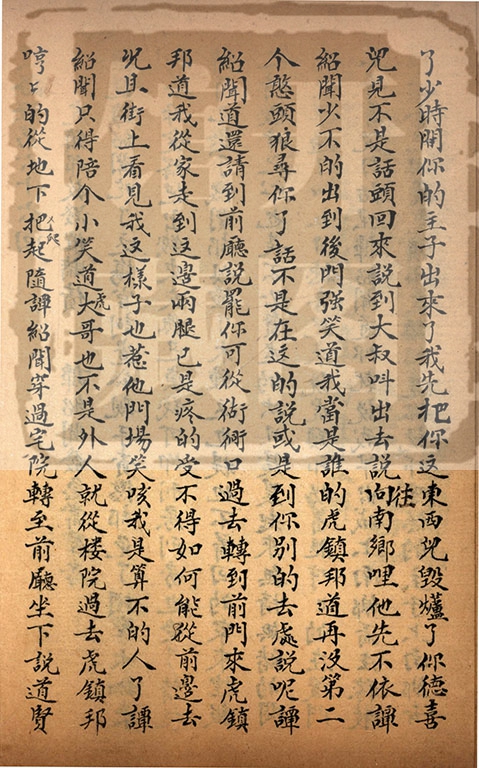 了少時開你的主子出來了我先把你这東西兒毀爐了你德喜
兒見不是話頭回來說到大叔叫出去說往向南鄉哩他先不依譚
紹聞少不的出到後門強笑道我當是誰的虎鎮邦道再没第二
个憨頭狼尋你了話不是在这的說或是到你别的去處說呢譚
紹聞道還請到前廳說罷你可從衚衕口過去轉到前門來虎鎮
邦道我從家走到这邊兩腿已是疼的受不得如何能從前邊去
况且街上看見我这樣子也惹他門場笑咳我是算不的人了譚
紹聞只得陪个小笑道虎大哥也不是外人就從楼院過去虎鎮邦
哼〻的從地下把爬起隨譚紹聞穿過宅院轉至前廳坐下說道賢